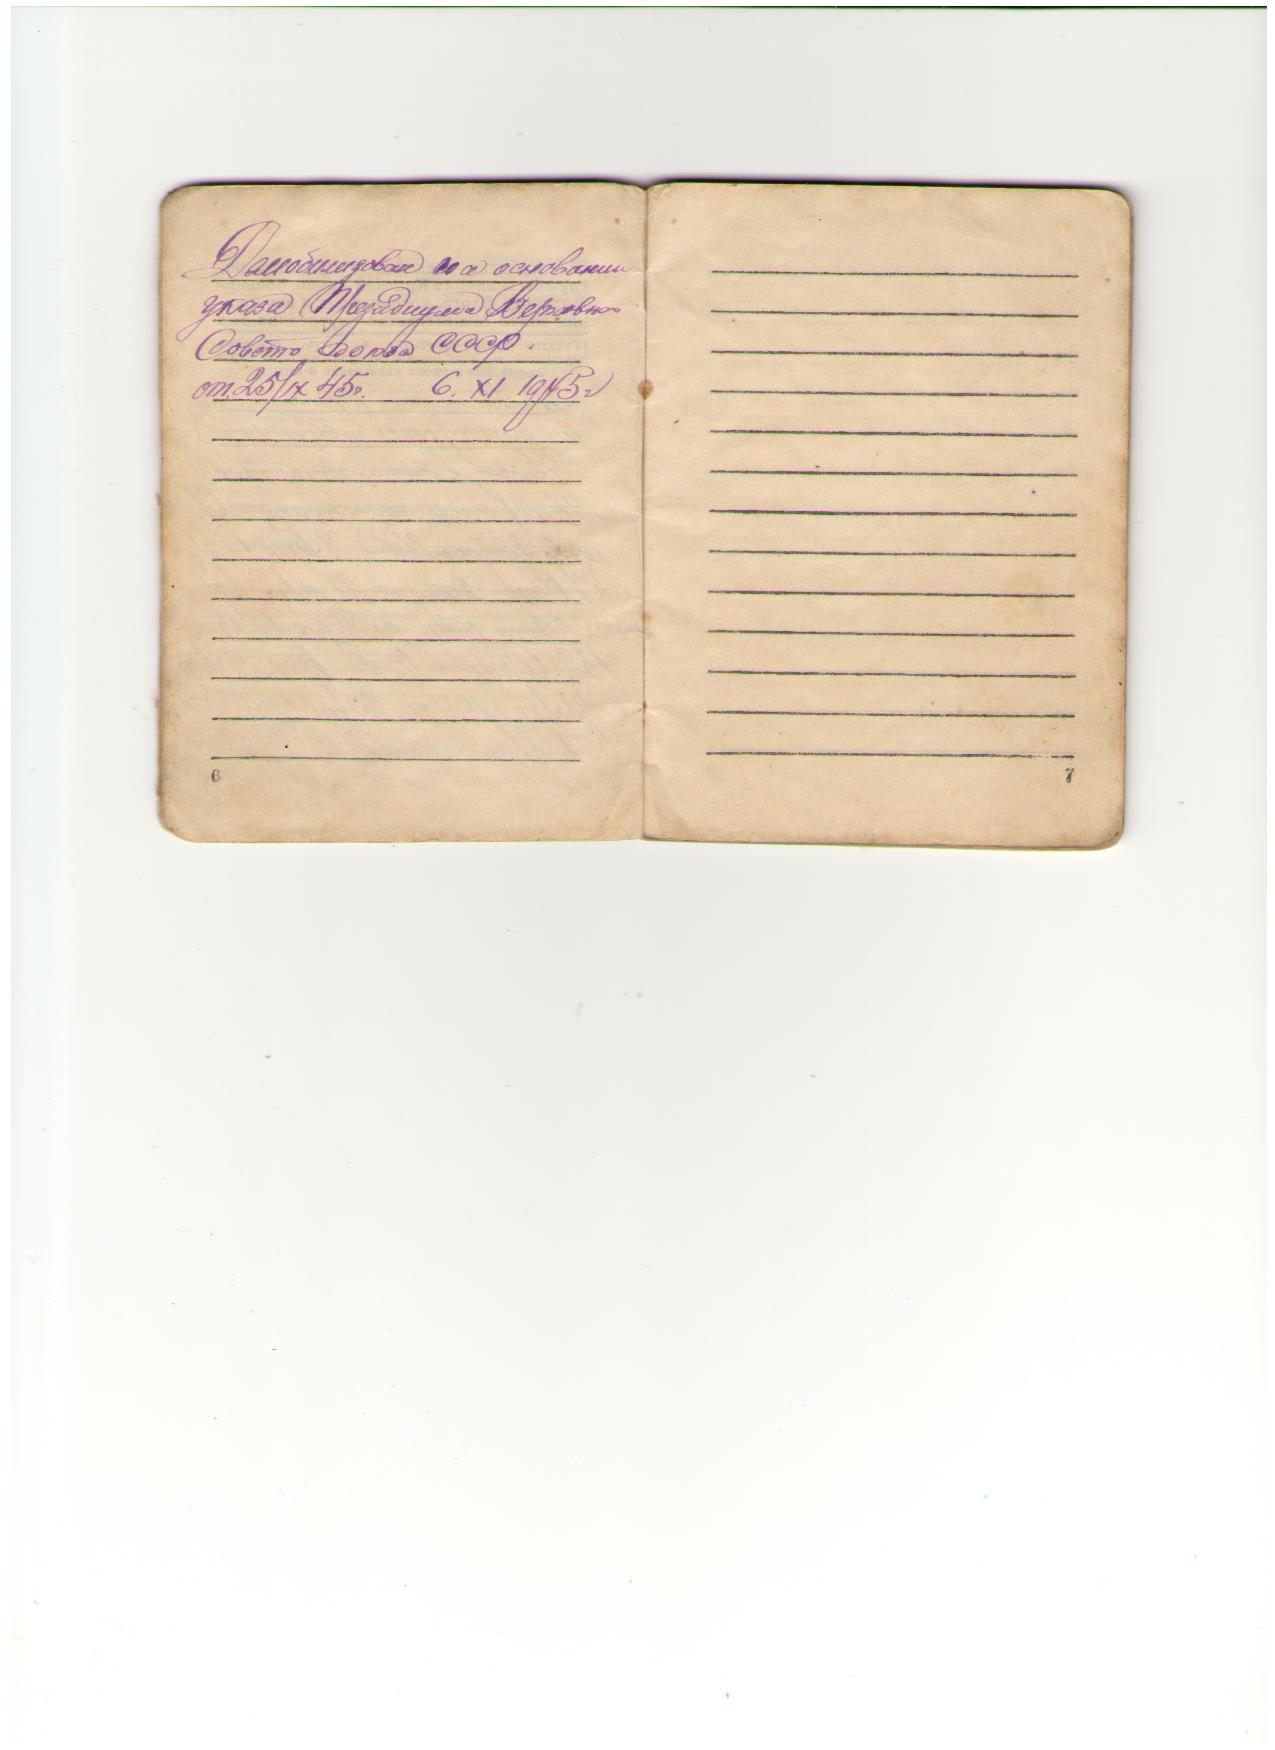 Дамобилизован на основании
указа Президиума Верховно
Совета Союза СССР.
от 25/IX 45г. 6. XI 1945г
6
7